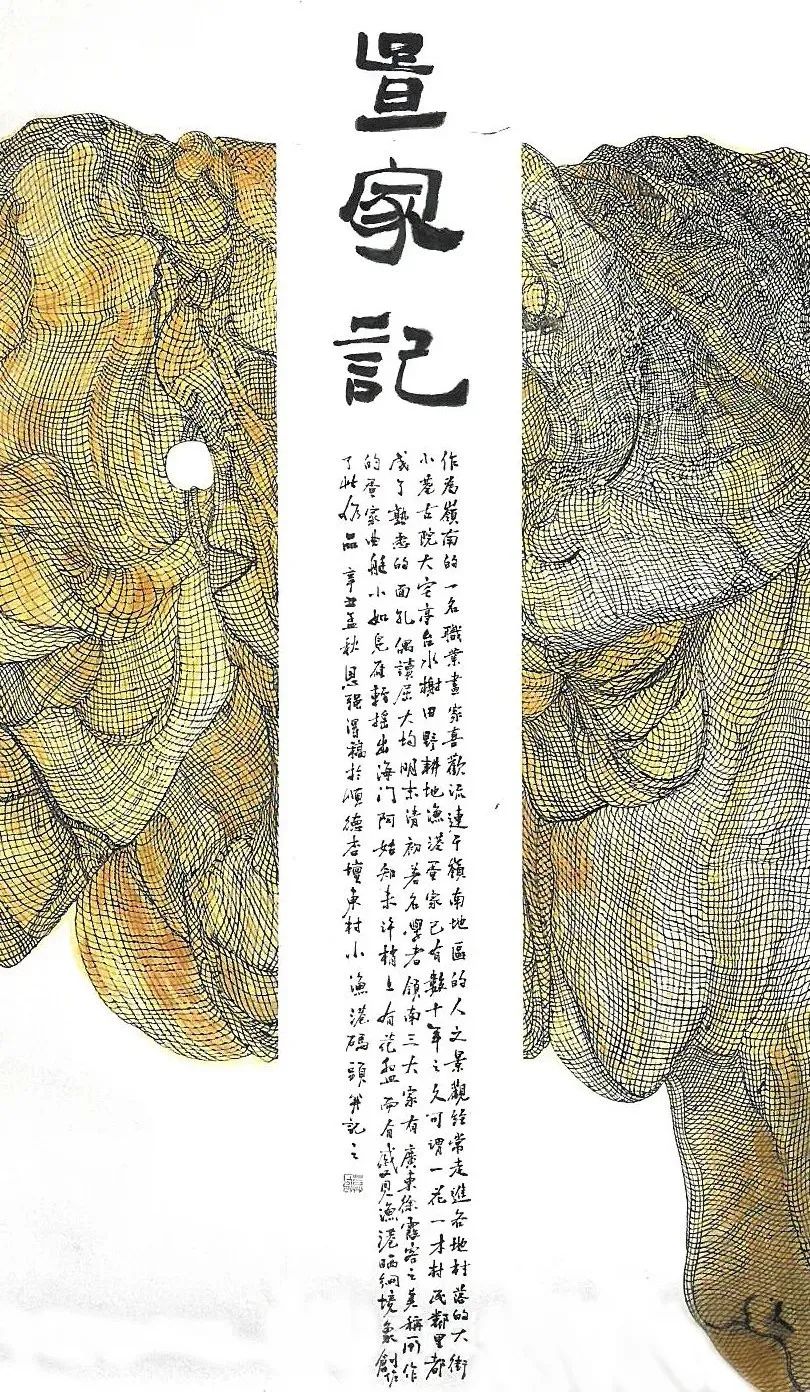 疍家記
作為嶺南的一名職業畫家喜歡流連于嶺南地區的人文景觀經常走進各地村落的大街
小巷古院大宅亭台水榭田野耕地漁港蛋家已有數十年之久可謂一花一木村民鄰里都
成了熟悉的面孔偶讀屈大均明末清初著名學者領南三大家有廣東徐霞客之美稱所作
的蛋家曲艇小如鳧雁輕搖出海門阿始知未許梢上有花盆而有感又見漁港晒網境象創作
了此作品 辛丑孟秋恩强得稿於順德杏壇東村小漁港碼頭并記之